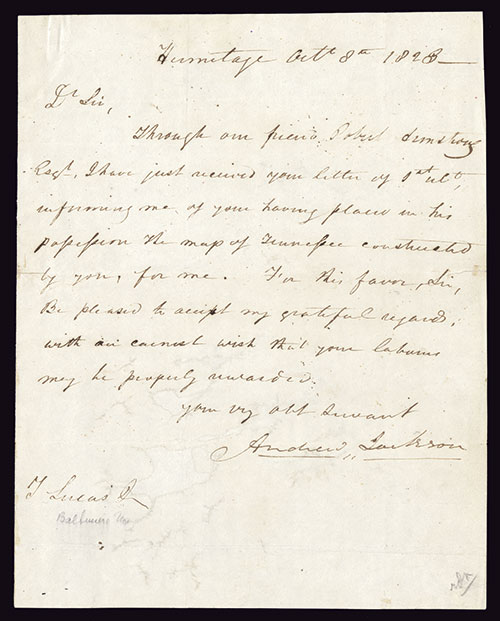 Hermitage Octr 8th 1828
Dr Sir,
Through our friend Robert Armstrong
Esqr, I have just received your letter of 1st ulto,
informing me of your having placed in his
possession the map of Tennessee constructed
by you, for me. For this favor, Sir,
Be pleased to accept my grateful regards,
with an earnest wish that your labours
may be properly rewarded.
your vry obt Servant
Andrew Jackson
F Lucas Jr
Baltimore